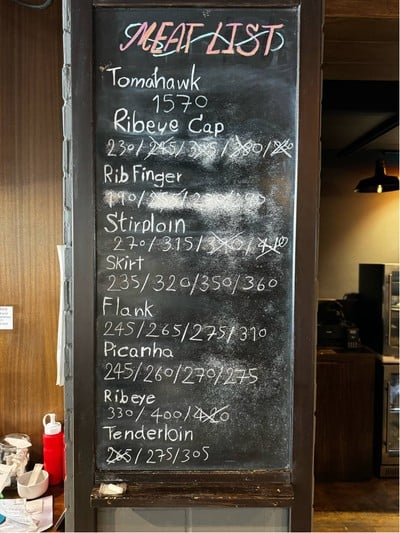 MEAT LIST
Tomahawk
1570
Ribeye Cap
230/245/305/380/
Rib Finger
Stirploin
270/315/390/410
Skirt
235/320/350/360
Flank
245/265/275/310
Picanha
245/260/270/275
Ribeye
330/400/420
Tenderloin
265/275/305